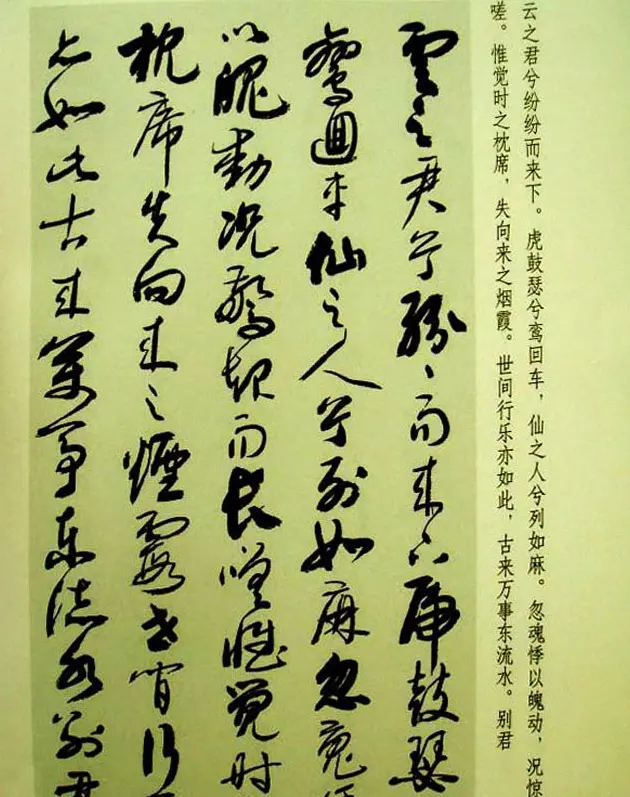 云之君兮纷纷而来下。虎鼓瑟兮鸾回车，仙之人兮列如麻。忽魂悸以魄动，况惊
嗟。惟觉时之枕席，失向来之烟霞。世间行乐亦如此，古来万事东流水。别君
雲之君兮紛々而来下虎鼓瑟
鸞迴車仙之人兮列如麻忽魂
以魄動况驚起而長嗟惟覺时
枕席失向来之煙霞世间行
亦如此古来萬事東流水别君